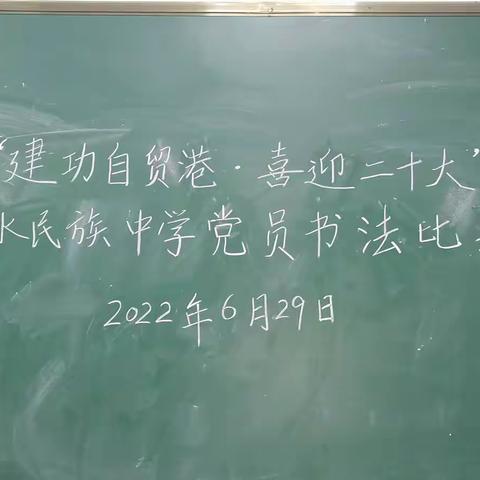 “建功自贸港·喜迎二十大”
水民族中学党员书法比
2022年6月29日